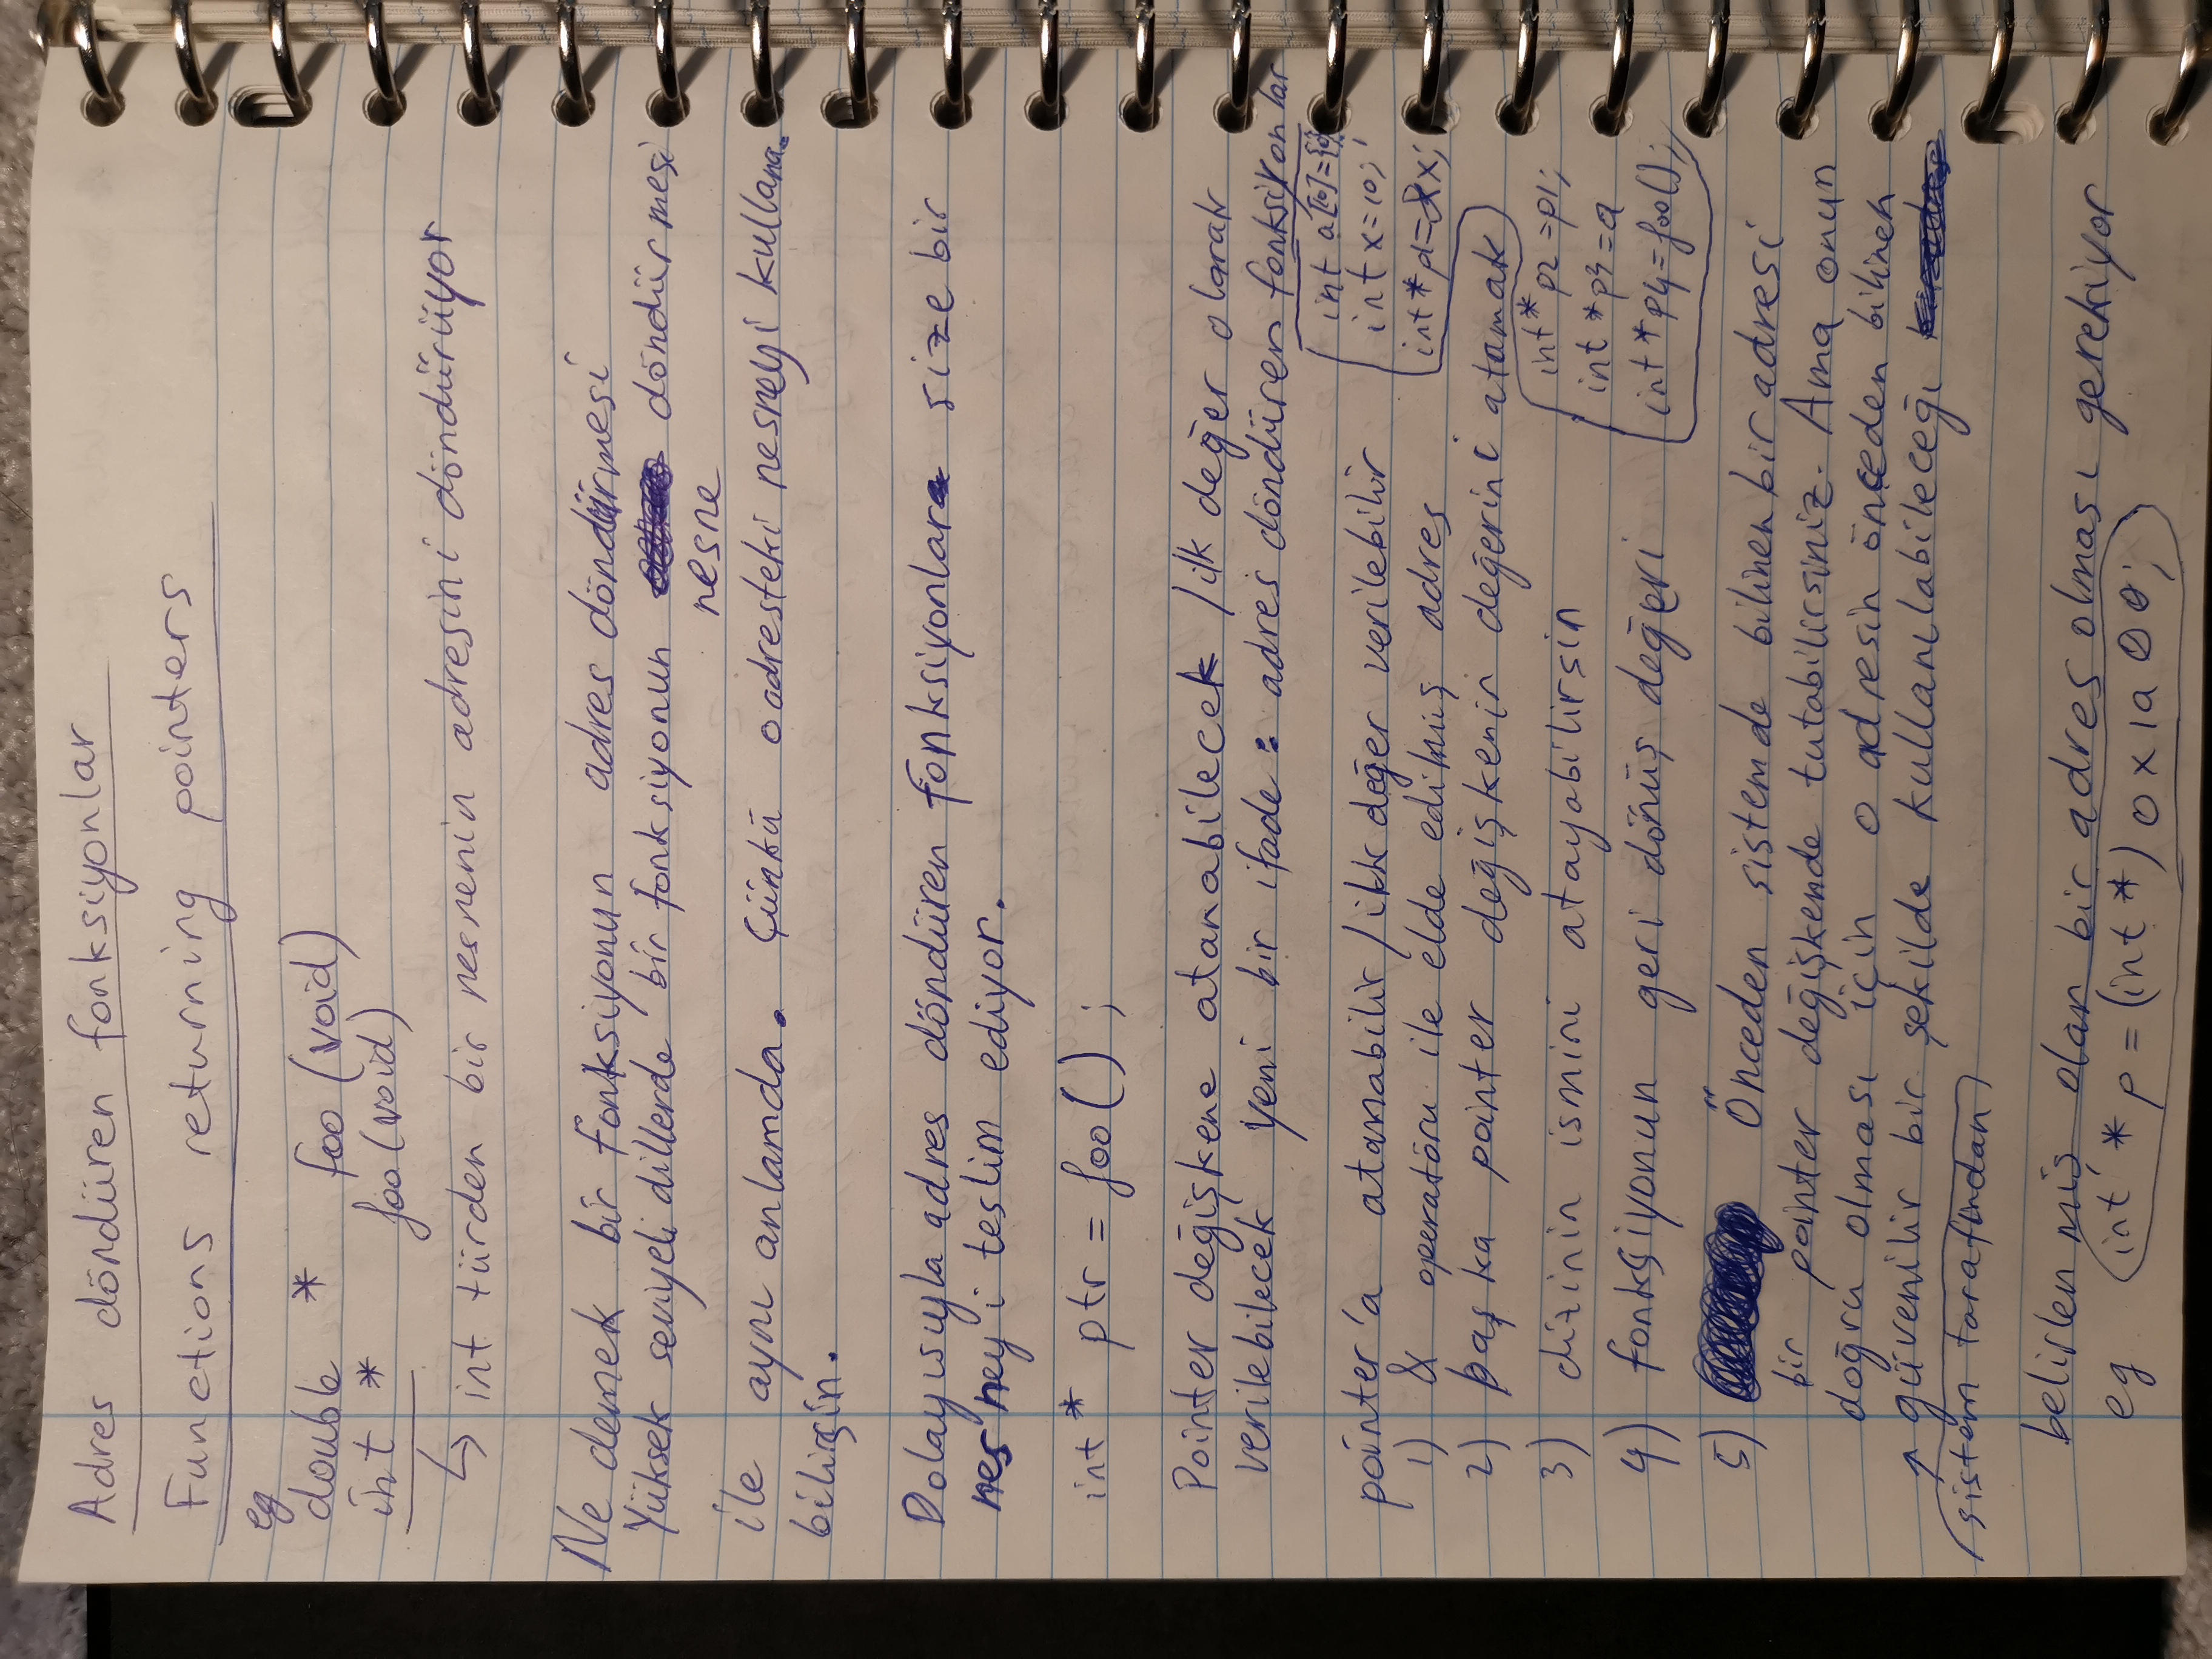 Adres döndüren fonksiyonlar
Functions returning pointers
eg
double * foo (void)
int * foo (void)
↳ int türden bir nesnenin adresini döndürüyor
Ne demek bir fonksiyonun adres döndürmesi
Yüksek seviyeli dillerde bir fonksiyonun döndürmesi
nesne
ile aynı anlamda. Çünkü o adresteki nesneyi kullana-
bilirsin.
Dolayısıyla adres döndüren fonksiyonlar size bir
nesneyi teslim ediyor.
int * ptr = foo ( ) ;
Pointer değişkene atanabilecek / ilk değer olarak
verilebilecek yeni bir ifade : adres döndüren fonksiyonlar
int a[10]={0};
pointer'a atanabilir / ilk değer verilebilir
int x=10;
1) & operatörü ile elde edilmiş adres
int * p1=&x;
2) başka pointer değişkenin değerini atamak
int * p2 =p1;
3) dizinin ismini atayabilirsin
int * p3 =a
4) fonksiyonun geri dönüş değeri
int * p4=foo();
5) Önceden sistemde bilinen bir adresi
bir pointer değişkende tutabilirsiniz. Ama onun
doğru olması için o adresin önceden bilinen
↗ güvenilir bir şekilde kullanılabileceği
sistem tarafından
belirlenmiş olan bir adres olması gerekiyor
eg int * p = (int *) 0x1a00;